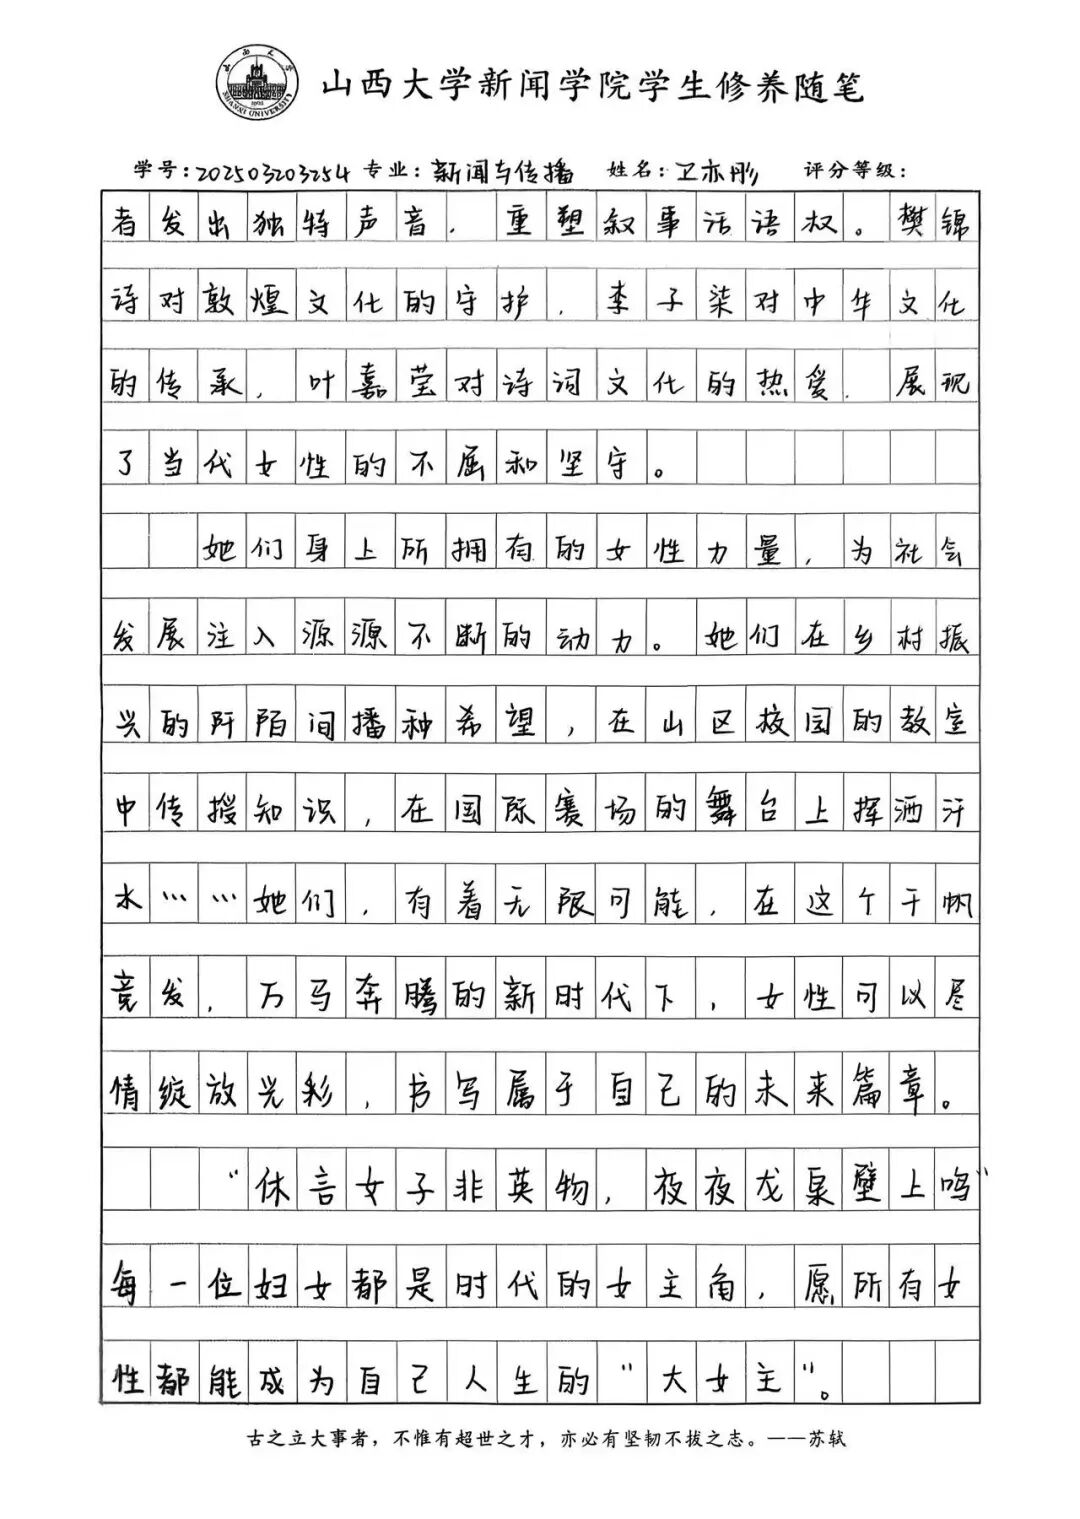 山西大学
SHANXI UNIVERSITY
1902
山西大学新闻学院学生修养随笔
学号：202503203254 专业：新闻与传播 姓名：卫亦彤 评分等级：
者发出独特声音，重塑叙事话语权。樊锦
诗对敦煌文化的守护，李子柒对中华文化
的传承，叶嘉莹对诗词文化的热爱，展现
了当代女性的不屈和坚守。
她们身上所拥有的女性力量，为社会
发展注入源源不断的动力。她们在乡村振
兴的阡陌间播种希望，在山区校园的教室
中传授知识，在国际赛场的舞台上挥洒汗
水……她们，有着无限可能，在这个千帆
竞发，万马奔腾的新时代下，女性可以尽
情绽放光彩，书写属于自己的未来篇章。
“休言女子非英物，夜夜龙泉壁上鸣”
每一位妇女都是时代的女主角，愿所有女
性都能成为自己人生的“大女主”。
古之立大事者，不惟有超世之才，亦必有坚韧不拔之志。——苏轼